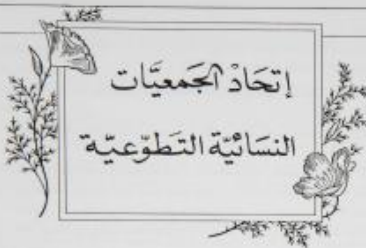 إتحَادْ الجَمعيَّات
النسَائيّة التَطوّعيّة